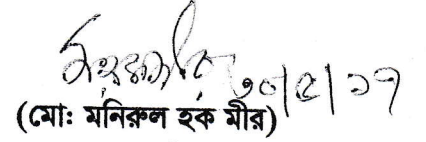 ৩০/৫/১৭
(মোঃ মনিরুল হক মীর)